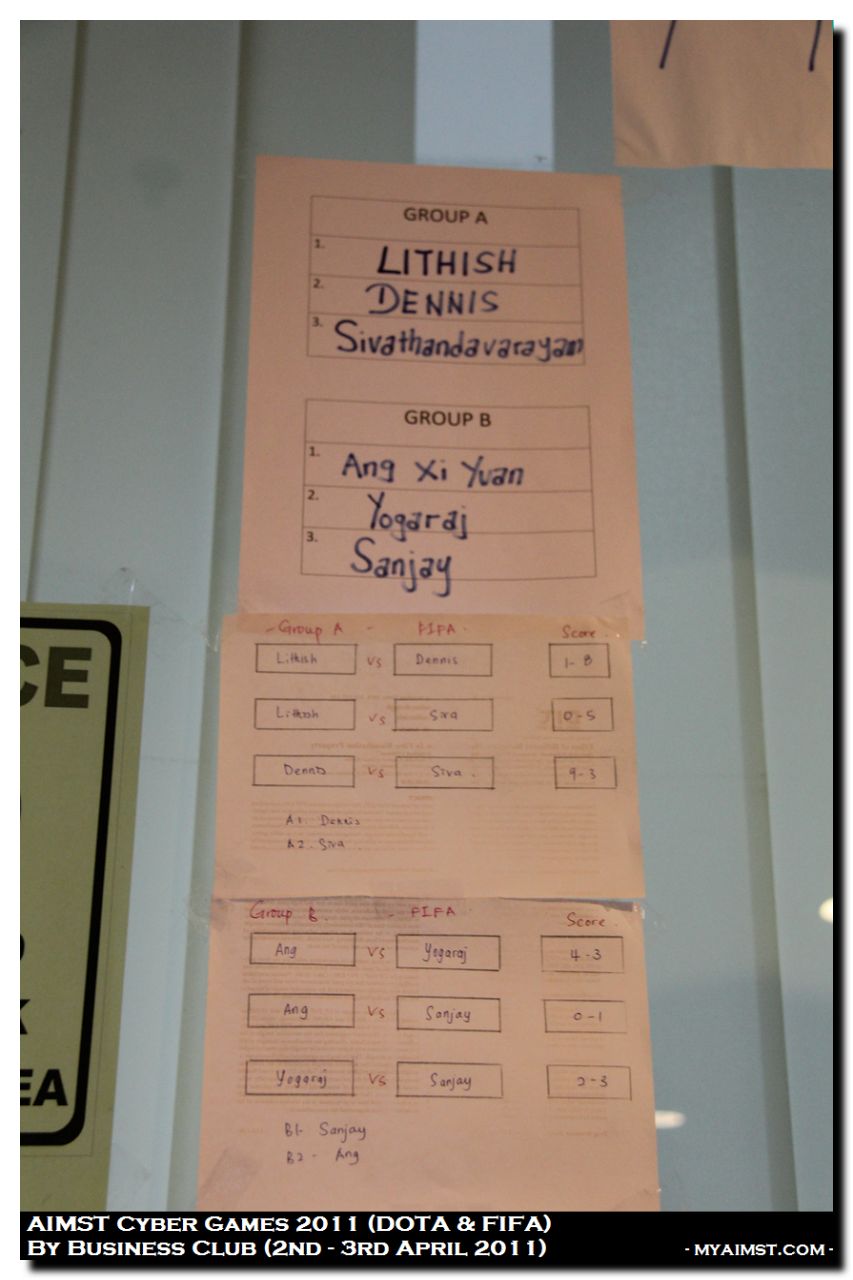 GROUP A
1. LITHISH
2. DENNIS
3. Sivathandavarayam
GROUP B
1. Ang Xi Yuan
2. Yogaraj
3. Sanjay
- Group A - FIFA - Score.
Lithish vs Dennis 1-8
Lithish vs Siva 0-5
Dennis vs Siva. 9-3
A1. Dennis
A2. Siva.
Group B. - FIFA Score.
Ang vs Yogaraj 4-3
Ang vs Sanjay 0-1
Yogaraj vs Sanjay 2-3
B1- Sanjay
B2- Ang
CE
EA
AIMST CYBER GAMES 2011 (DOTA & FIFA)
BY BUSINESS CLUB (2ND - 3RD APRIL 2011)
- MYAIMST.COM -